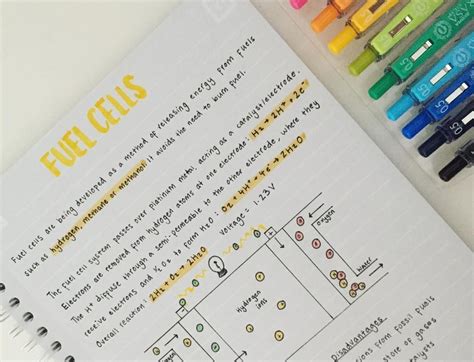 FUEL CELLS
Fuel cells are being developed as a method of releasing energy from fuels
such as hydrogen, methane or methanol. It avoids the need to burn fuel.
The fuel cell system passes over platinum metal acting as a catalyst/electrode.
Electrons are removed from hydrogen atoms at one electrode: H₂ → 2H⁺ + 2e⁻
The H⁺ diffuse through a semi permeable to the other electrode, where they
receive electrons and ½ O₂ to form H₂O: O₂ + 4H⁺ + 4e⁻ → 2H₂O
Overall reaction: 2H₂ + O₂ → 2H₂O
Voltage = 1.23V
oxygen
water
Hydrogen
ions
Disadvantages
from fossil fuels
of gases
0.5
0.5
0.5